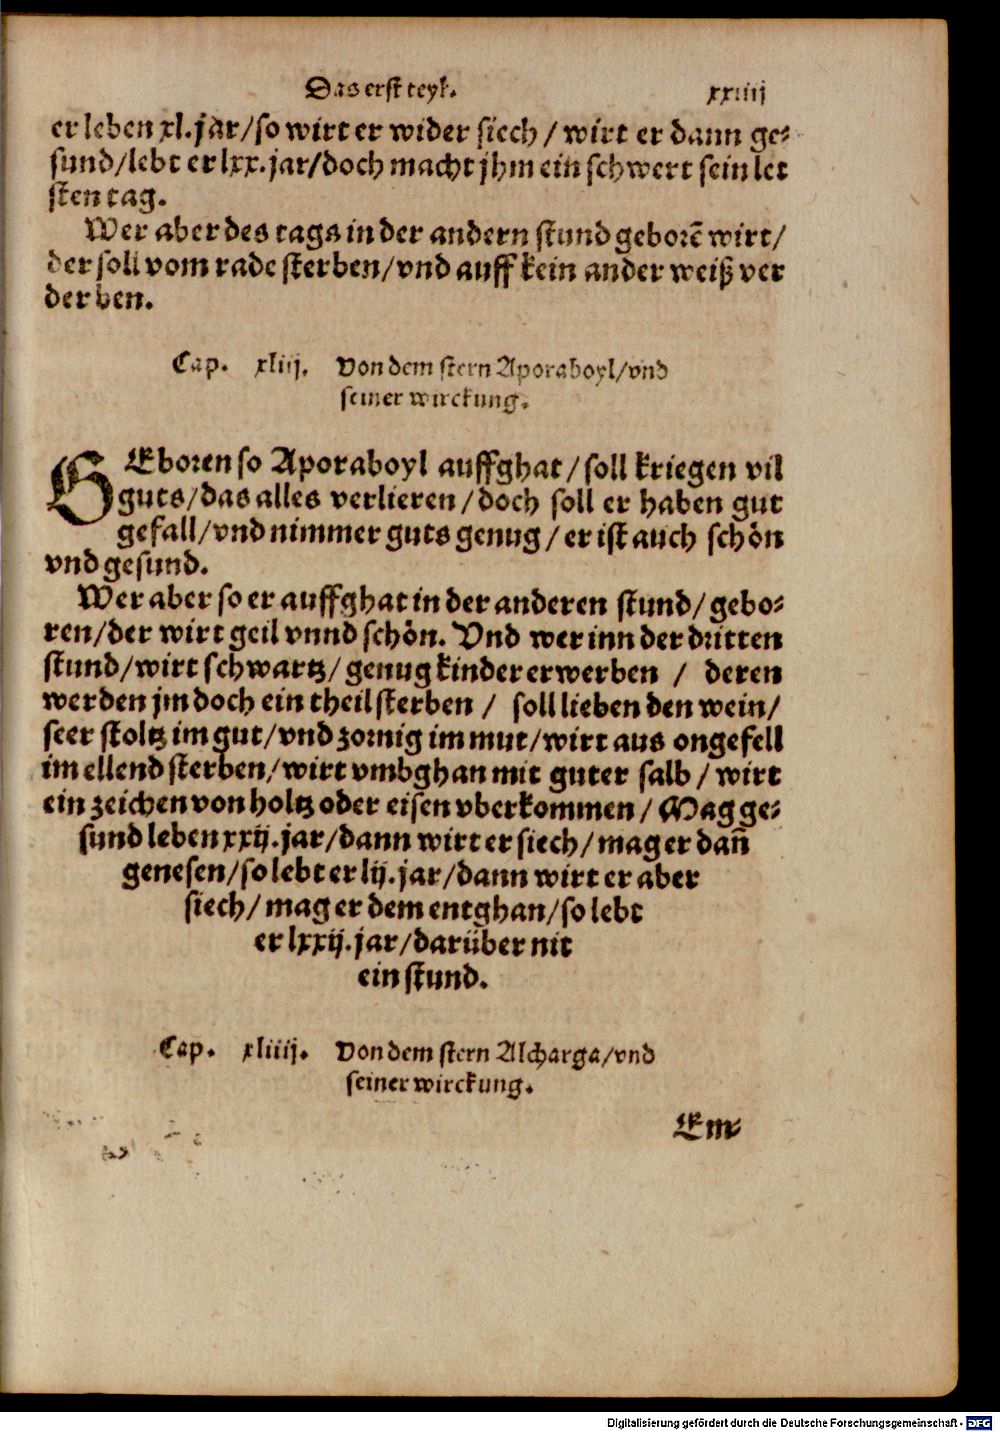 Das erst teyl. xxiiij
er leben xl. jar/so wirt er wider siech/wirt er dann ge⸗
sund/lebt er lxx. jar/doch macht jhm ein schwert sein let
sten tag.
Wer aber des tags in der andern stund geborē wirt/
der soll vom rade sterben/vnd auff kein ander weiß ver
derben.
Cap. xliij. Von dem stern Aporaboyl/vnd
seiner wirckung.
GEboren so Aporaboyl auffghat/soll kriegen vil
guts/das alles verlieren/doch soll er haben gut
gefall/vnd nimmer guts genug/er ist auch schön
vnd gesund.
Wer aber so er auffghat in der anderen stund/gebo⸗
ren/der wirt geil vnnd schön. Vnd wer inn der dritten
stund/wirt schwartz/genug kinder erwerben / deren
werden jm doch ein theil sterben / soll lieben den wein/
seer stoltz im gut/vnd zornig im mut/wirt aus ongefell
im ellend sterben/wirt vmbghan mit guter salb/wirt
ein zeichen von holtz oder eisen vberkommen/Mag ge⸗
sund leben xxij. jar/dann wirt er siech/mag er dañ
genesen/so lebt er lij. jar/dann wirt er aber
siech/mag er dem entghan/so lebt
er lxxij. jar/darüber nit
ein stund.
Cap. xliiij. Von dem stern Alcharga/vnd
seiner wirckung.
Em⸗
Digitalisierung gefördert durch die Deutsche Forschungsgemeinschaft - DFG